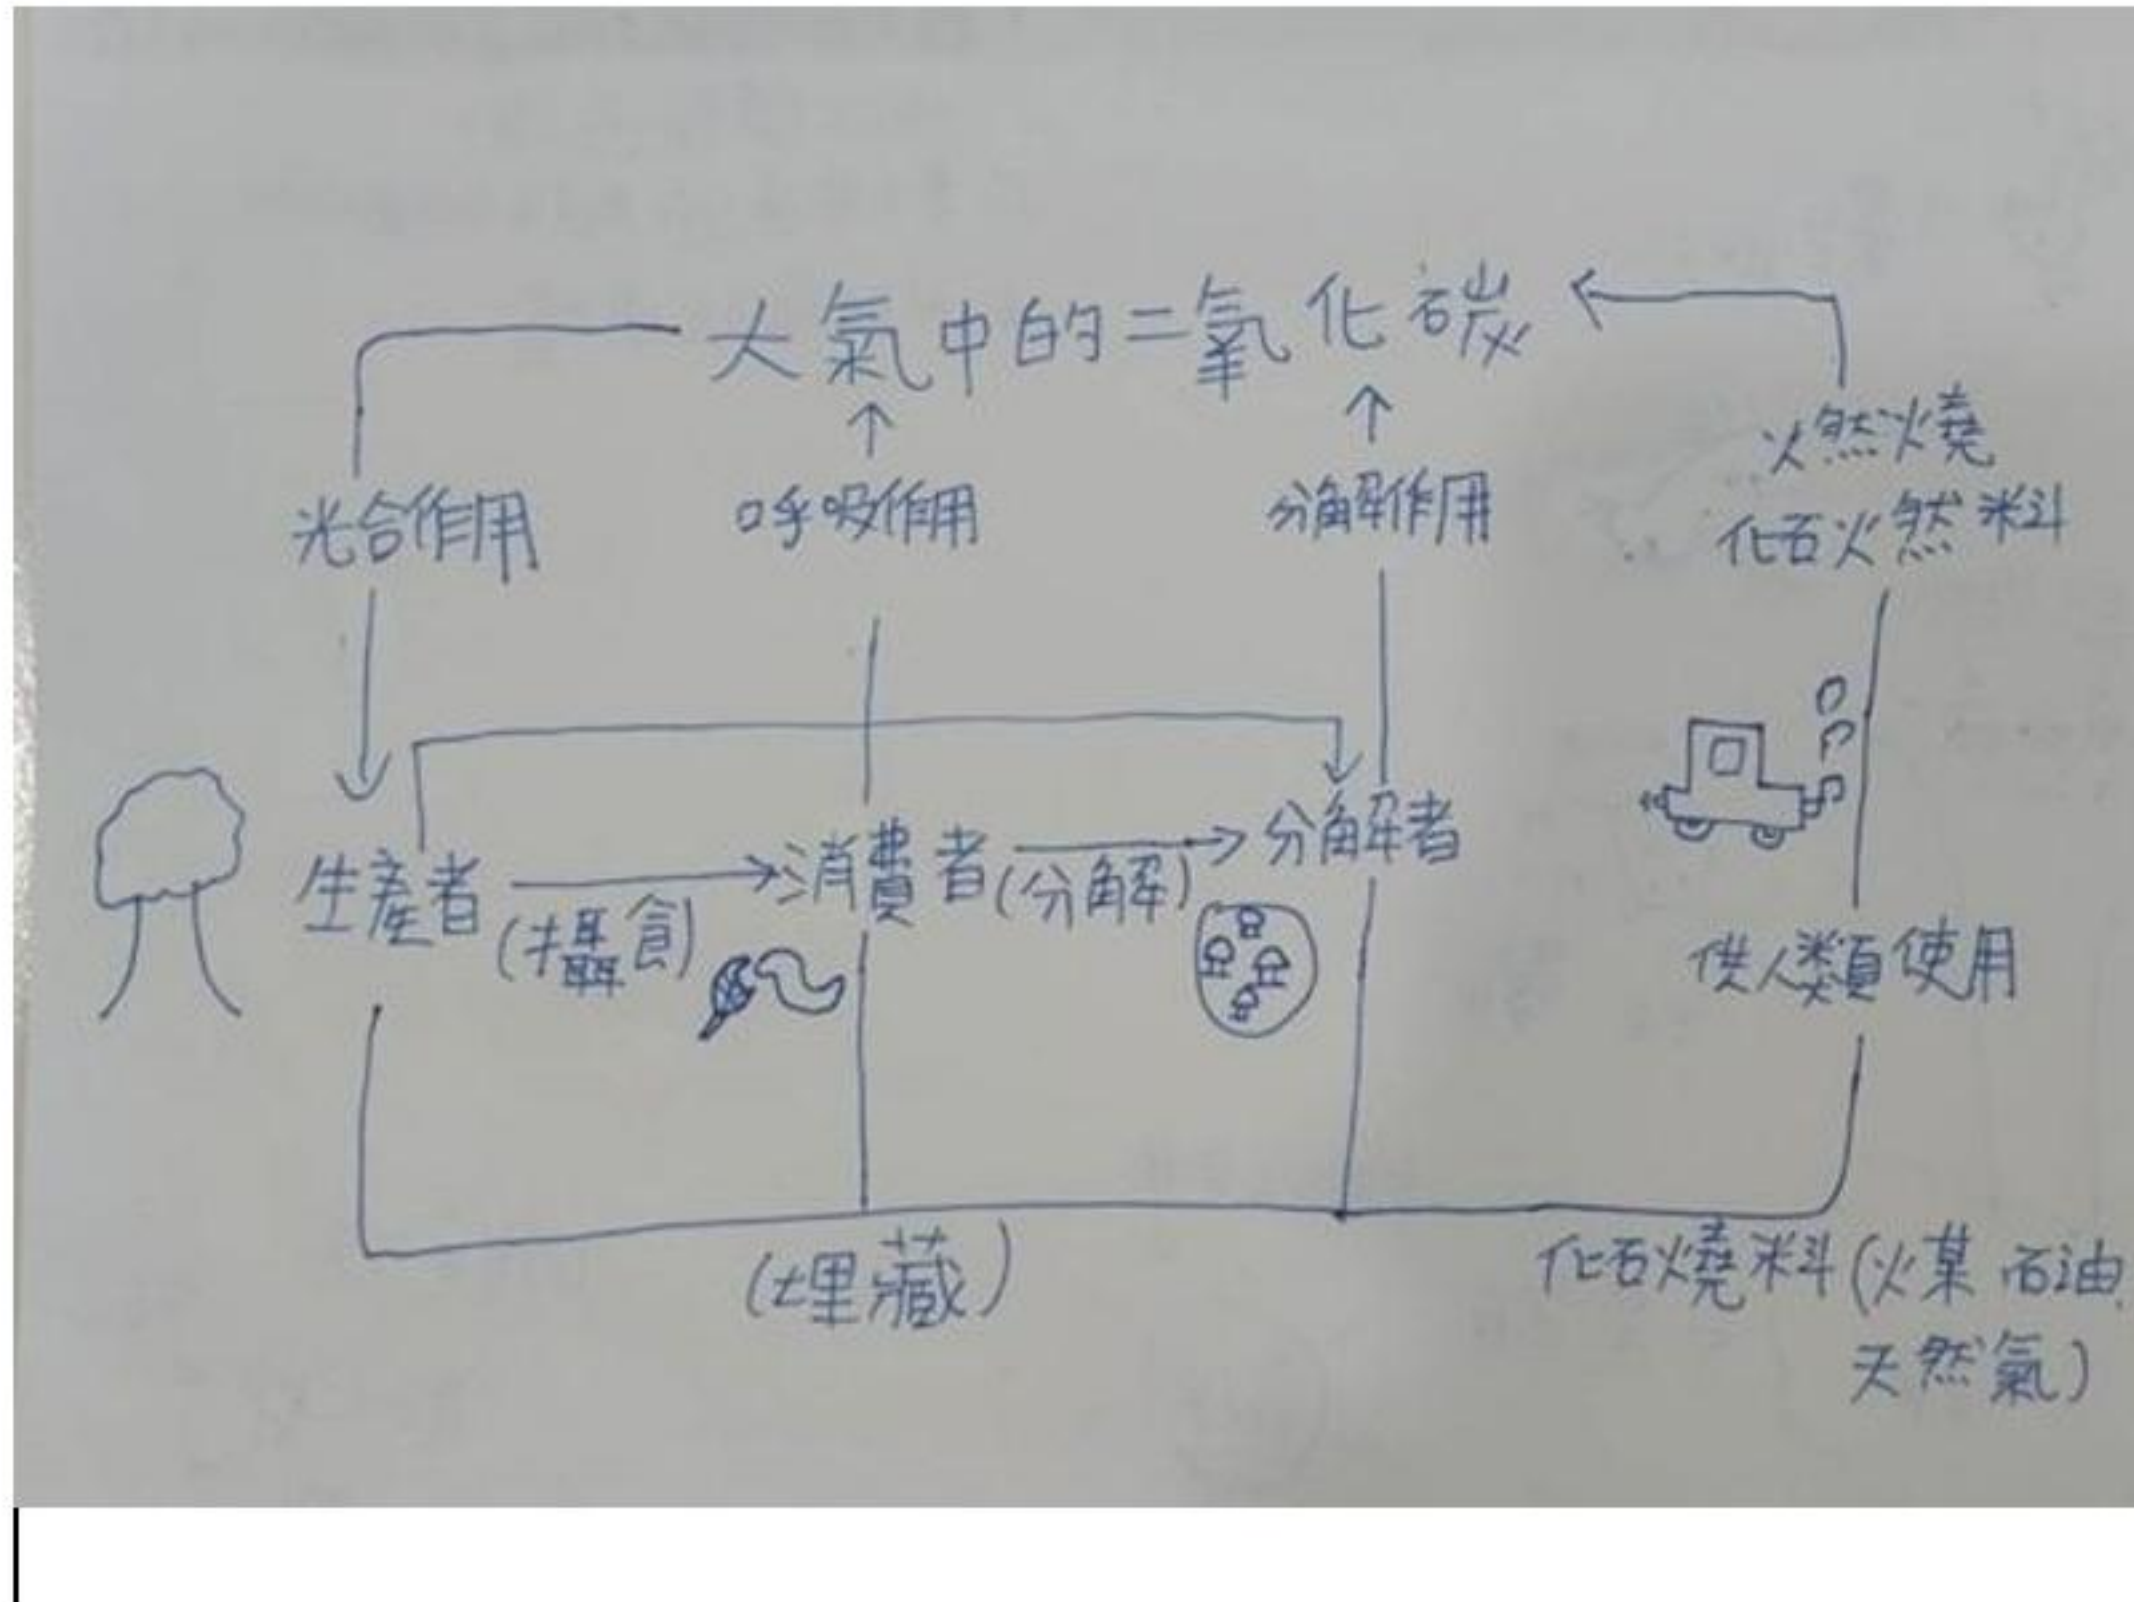 大氣中的二氧化碳
光合作用
呼吸作用
分解作用
燃燒
化石燃料
生產者
(攝食)
消費者
(分解)
分解者
供人類使用
(埋藏)
化石燒料(煤 石油
天然氣)